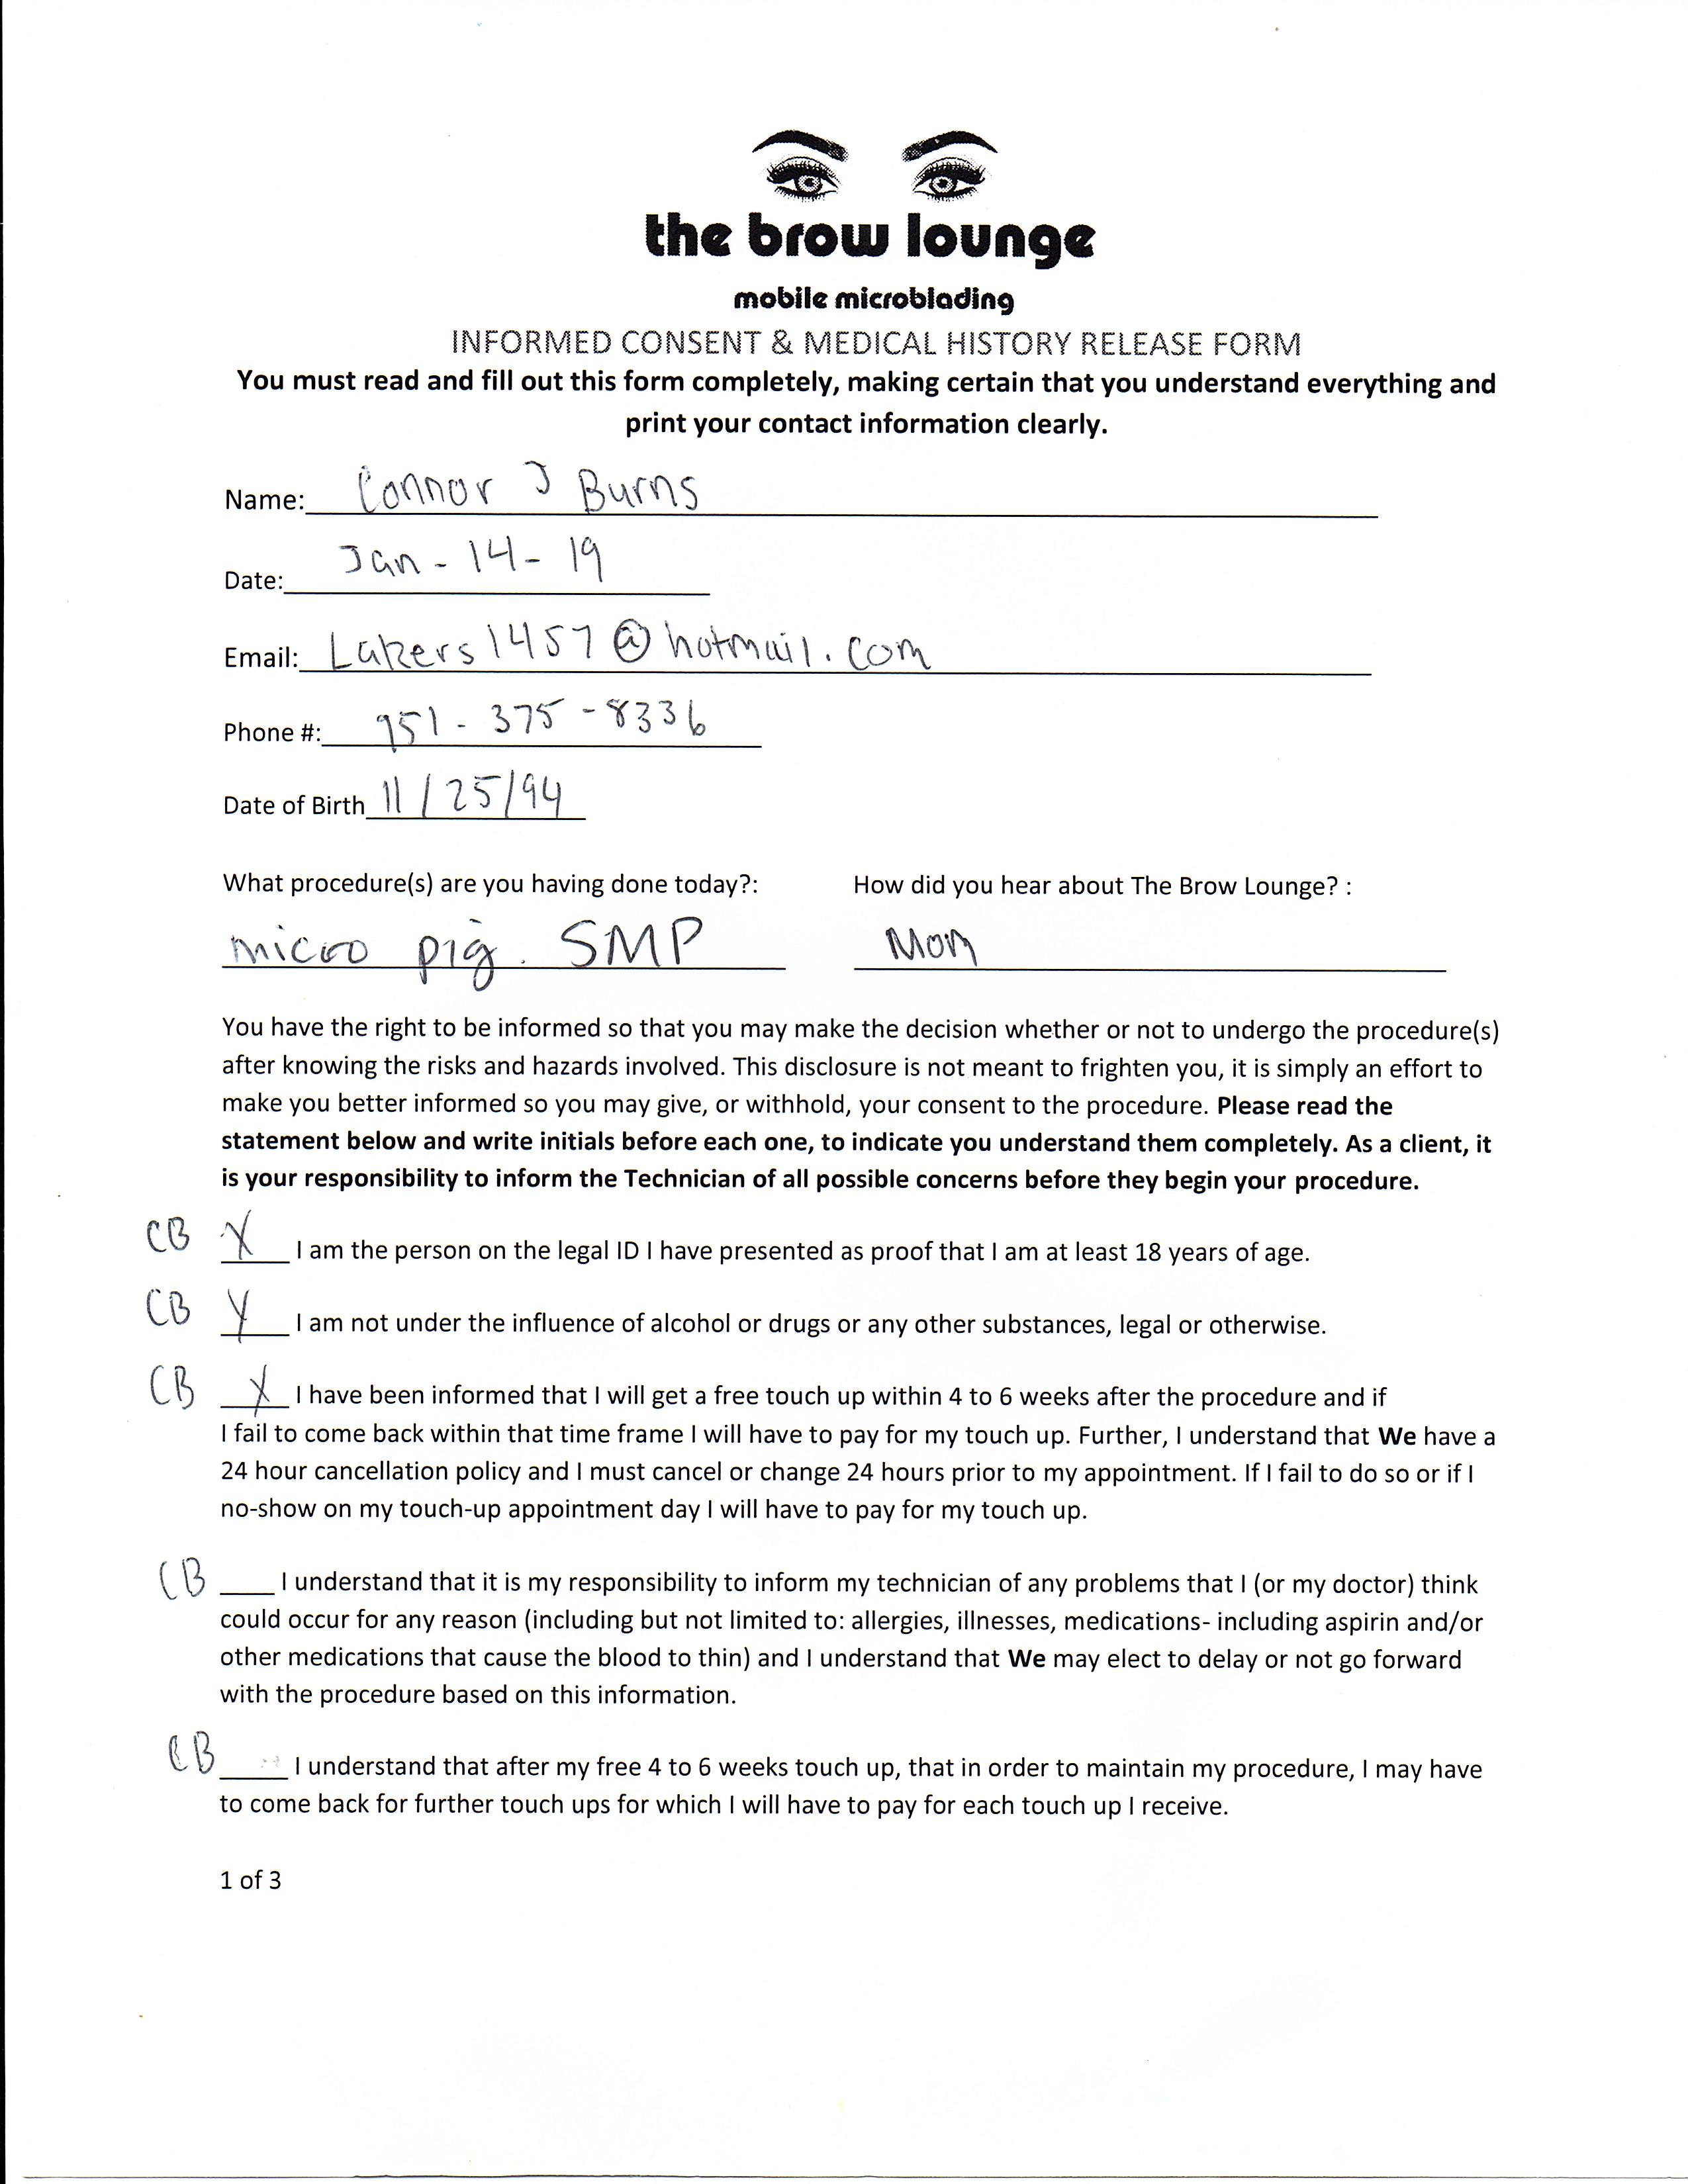 the brow lounge
mobile microblading
INFORMED CONSENT & MEDICAL HISTORY RELEASE FORM
You must read and fill out this form completely, making certain that you understand everything and
print your contact information clearly.
Name: Connor J Burns
Date: Jan - 14 - 19
Email: Lakers1457@hotmail.com
Phone #: 951 - 375 - 8336
Date of Birth 11/25/94
What procedure(s) are you having done today?: How did you hear about The Brow Lounge? :
micro pig. SMP Mom
You have the right to be informed so that you may make the decision whether or not to undergo the procedure(s)
after knowing the risks and hazards involved. This disclosure is not meant to frighten you, it is simply an effort to
make you better informed so you may give, or withhold, your consent to the procedure. Please read the
statement below and write initials before each one, to indicate you understand them completely. As a client, it
is your responsibility to inform the Technician of all possible concerns before they begin your procedure.
CB X I am the person on the legal ID I have presented as proof that I am at least 18 years of age.
CB X I am not under the influence of alcohol or drugs or any other substances, legal or otherwise.
CB X I have been informed that I will get a free touch up within 4 to 6 weeks after the procedure and if
I fail to come back within that time frame I will have to pay for my touch up. Further, I understand that We have a
24 hour cancellation policy and I must cancel or change 24 hours prior to my appointment. If I fail to do so or if I
no-show on my touch-up appointment day I will have to pay for my touch up.
CB ____ I understand that it is my responsibility to inform my technician of any problems that I (or my doctor) think
could occur for any reason (including but not limited to: allergies, illnesses, medications- including aspirin and/or
other medications that cause the blood to thin) and I understand that We may elect to delay or not go forward
with the procedure based on this information.
CB _____ I understand that after my free 4 to 6 weeks touch up, that in order to maintain my procedure, I may have
to come back for further touch ups for which I will have to pay for each touch up I receive.
1 of 3